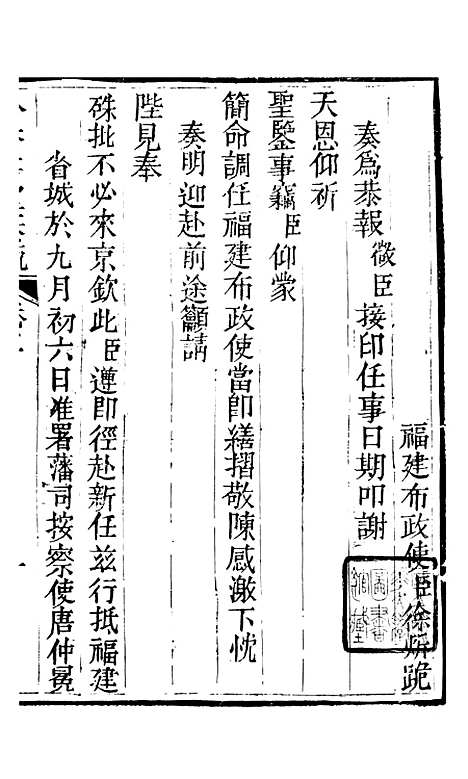 福建布政使臣徐炘跪
奏爲恭報微臣接印任事日期叩謝
天恩仰祈
聖鑒事竊臣仰蒙
簡命調任福建布政使當卽繕摺敬陳感激下忱
奏明迎赴前途籲請
陛見奉
硃批不必來京欽此臣遵卽徑赴新任茲行抵福建
省城於九月初六日准署藩司按察使唐仲冕